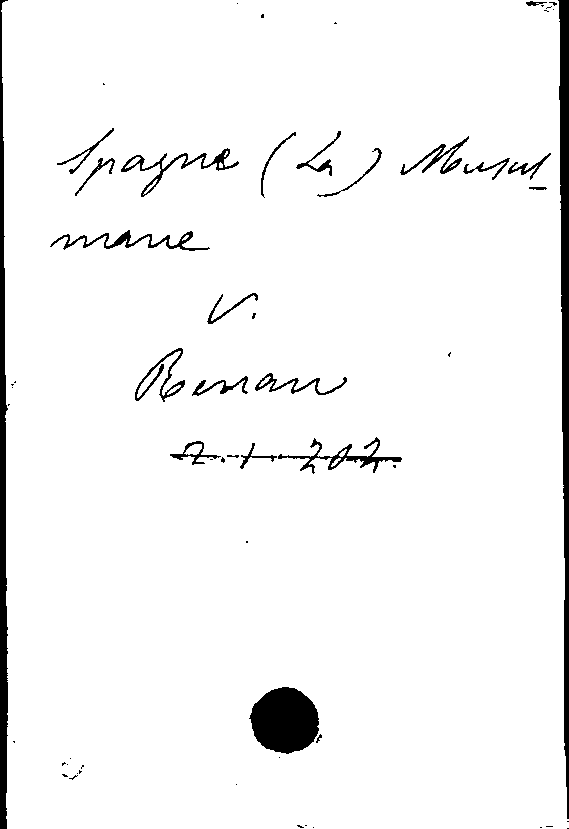 Spagne (La) Musul-
mane
V.
Renan
Z. 1. 202.